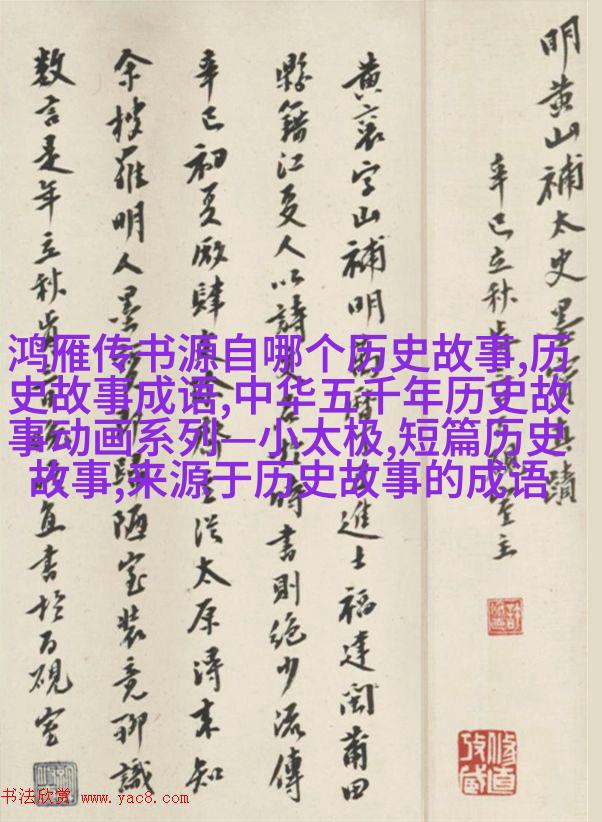 鸿雁传书源自哪个历史故事,历
史故事成语,中华五千年历史故
事动画系列—小太极,短篇历史
故事,来源于历史故事的成语
明黄山補太史墨蹟
辛巳立秋主
黄襄字山補明進士福建閩莆田
縣籍江夏人以詩時書則絶少流傳
辛巳初夏厰肆太原潯来知
余搜羅明人墨歸陋室装竟聊識
數言是年立秋宜書於百硯室
书法欣赏 www.yac8.com